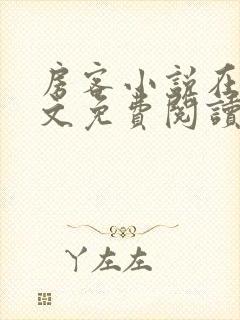 房客小说在
文免費閱讀
丫左左